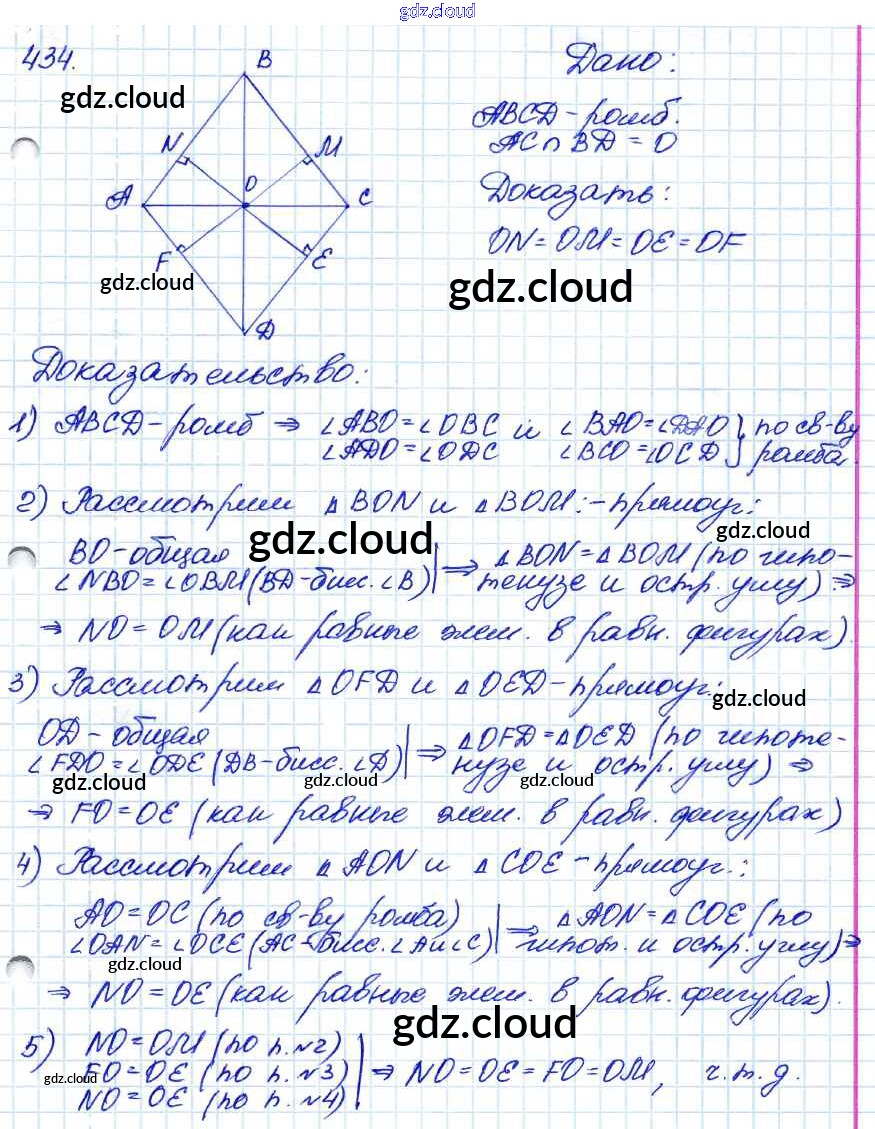 gdz.cloud
434.
B
Дано:
gdz.cloud
ABCD - ромб.
N
M
AC ∩ BD = O
A
O
C
Доказать:
F
E
ON = OM = OE = OF
gdz.cloud
gdz.cloud
D
Доказательство:
1) ABCD - ромб ⇒ ∠ABO = ∠OBC и ∠BAO = ∠DAO } по св-ву
∠ADO = ∠ODC ∠BCO = ∠OCD } ромба.
2) Рассмотрим △BON и △BOM: - прямоуг.:
gdz.cloud
BO - общая gdz.cloud | ⇒ △BON = △BOM (по гипо-
∠NBO = ∠OBM (BD - бисс. ∠B) | тенузе и остр. углу) ⇒
⇒ NO = OM (как равные элем. в равн. фигурах).
3) Рассмотрим △OFD и △OED - прямоуг.:
gdz.cloud
OD - общая | ⇒ △OFD = △OED (по гипоте-
∠FDO = ∠ODE (DB - бисс. ∠D) | нузе и остр. углу) ⇒
gdz.cloud gdz.cloud gdz.cloud
⇒ FO = OE (как равные элем. в равн. фигурах)
4) Рассмотрим △AON и △COE - прямоуг.:
AO = OC (по св-ву ромба) | ⇒ △AON = △COE (по
∠OAN = ∠OCE (AC - бисс. ∠A и ∠C) | гипот. и остр. углу) ⇒
gdz.cloud
⇒ NO = OE (как равные элем. в равн. фигурах).
gdz.cloud
5) NO = OM (по п. №2) |
FO = OE (по п. №3) | ⇒ NO = OE = FO = OM, ч.т.д.
gdz.cloud
NO = OE (по п. №4) |